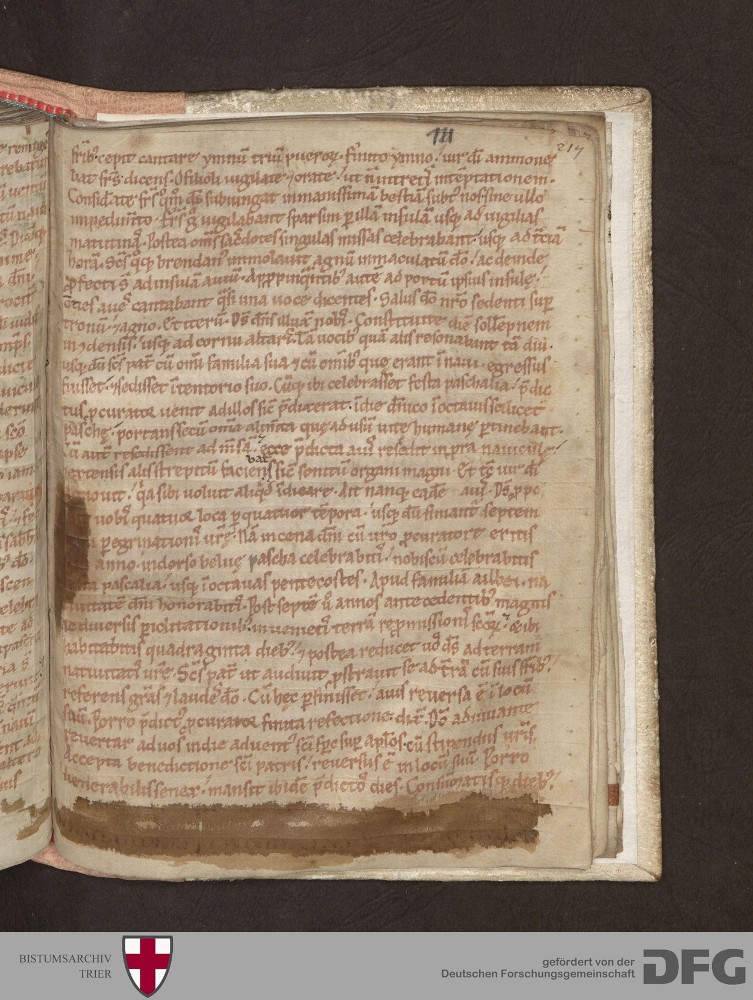 111
217
frib; cepit cantare ymnū triū pueroꝝ. Finito ymno. uir dī ammone
bat frēs dicens. O filioli uigilate ⁊ orate. ut n̄ intretis in teptationem.
Considerate frs qm̄ ds̄ subiungat inmanissimā bestiā subt' nos sine ullo
impedimto. Frēs g° uigilabant sparsim p illā insulā usq; ad uigilias
matutinas. Postea oms sacdotes singulas missas celebrabant usq; ad tciā
horā. Scs q;q; brendan' immolauit agnū inmaculatū dō. ac deinde
pfecti s ad insulā auiū. Appinquātib; autē ad portū ipsius insulę.
om̄es aues cantabant qsi una uoce dicentes. Salus dō nrō sedenti sup
tronū ⁊ agno. Et iterū. Ds dn̄s illuxit nobis. Constituite diē sollēpnem
in c̄densis. usq; ad cornu altaris. Tā uocib; quā alis resonabant tā diu.
usq; dū scs pat' cū omī familia sua ⁊ cū omīb; que erant ī naui. egressus
fuisset. ⁊ sedisset ī tentorio suo. Cūq; ibi celebrasset festa paschalia. p̄dic
tus pcurator uenit ad illos sic p̄dixerat. ī die dn̄ico ī octauis scilicet
paschę. portans secū omia alimta que ad usū uite humanę ptinebant.
Cū autē resedissent ad m̄sā. ecce p̄dicta auis resedit in p̄ra nauiculę
bat
extensis alis strepitū faciens sic sonitū organi magni. Et tc uir dī
nouit. qa sibi uoluit aliqd īdicare. Ait nanq; eadē auis. Ds p̄po
uobis quatuor loca p quatuor tēpora. usq; dū finiant' septem
pegrinationis urę. Nā in cena dn̄i cū uro pcuratore eritis
anno. in dorso beluę pascha celebrabitis. nobiscū celebrabitis
pascalia. usq; ī octauas pentecostes. Apud familiā ailbei. na
tiuitatē dn̄i honorabitis. Post septē u annos antecedentib; magnis
⁊ diuersis piclitationib;. inuenietis terrā repmissionis scoꝝ. ⁊ ibi
habitabitis quadraginta dieb;. ⁊ postea reducet uos ds ad terram
natiuitatis urę. Scs pat' ut audiuit. pstrauit se ad trā cū suis frib;.
referens grās ⁊ laudes dō. Cū hęc pfinisset. auis reuersa ē ī locū
suū. Porro p̄dict' pcurator finita refectione. dix̄. Dō adiuuante
reuertar ad uos in die aduent' sci spc sup aplos. cū stipendiis uris.
Accepta benedictione sci patris. reuersus ē in locū suū. Porro
uenerabilis senex. mansit ibidē p̄dictos dies. Consumatisq; dieb;.
BISTUMSARCHIV
TRIER
gefördert von der
Deutschen Forschungsgemeinschaft
DFG